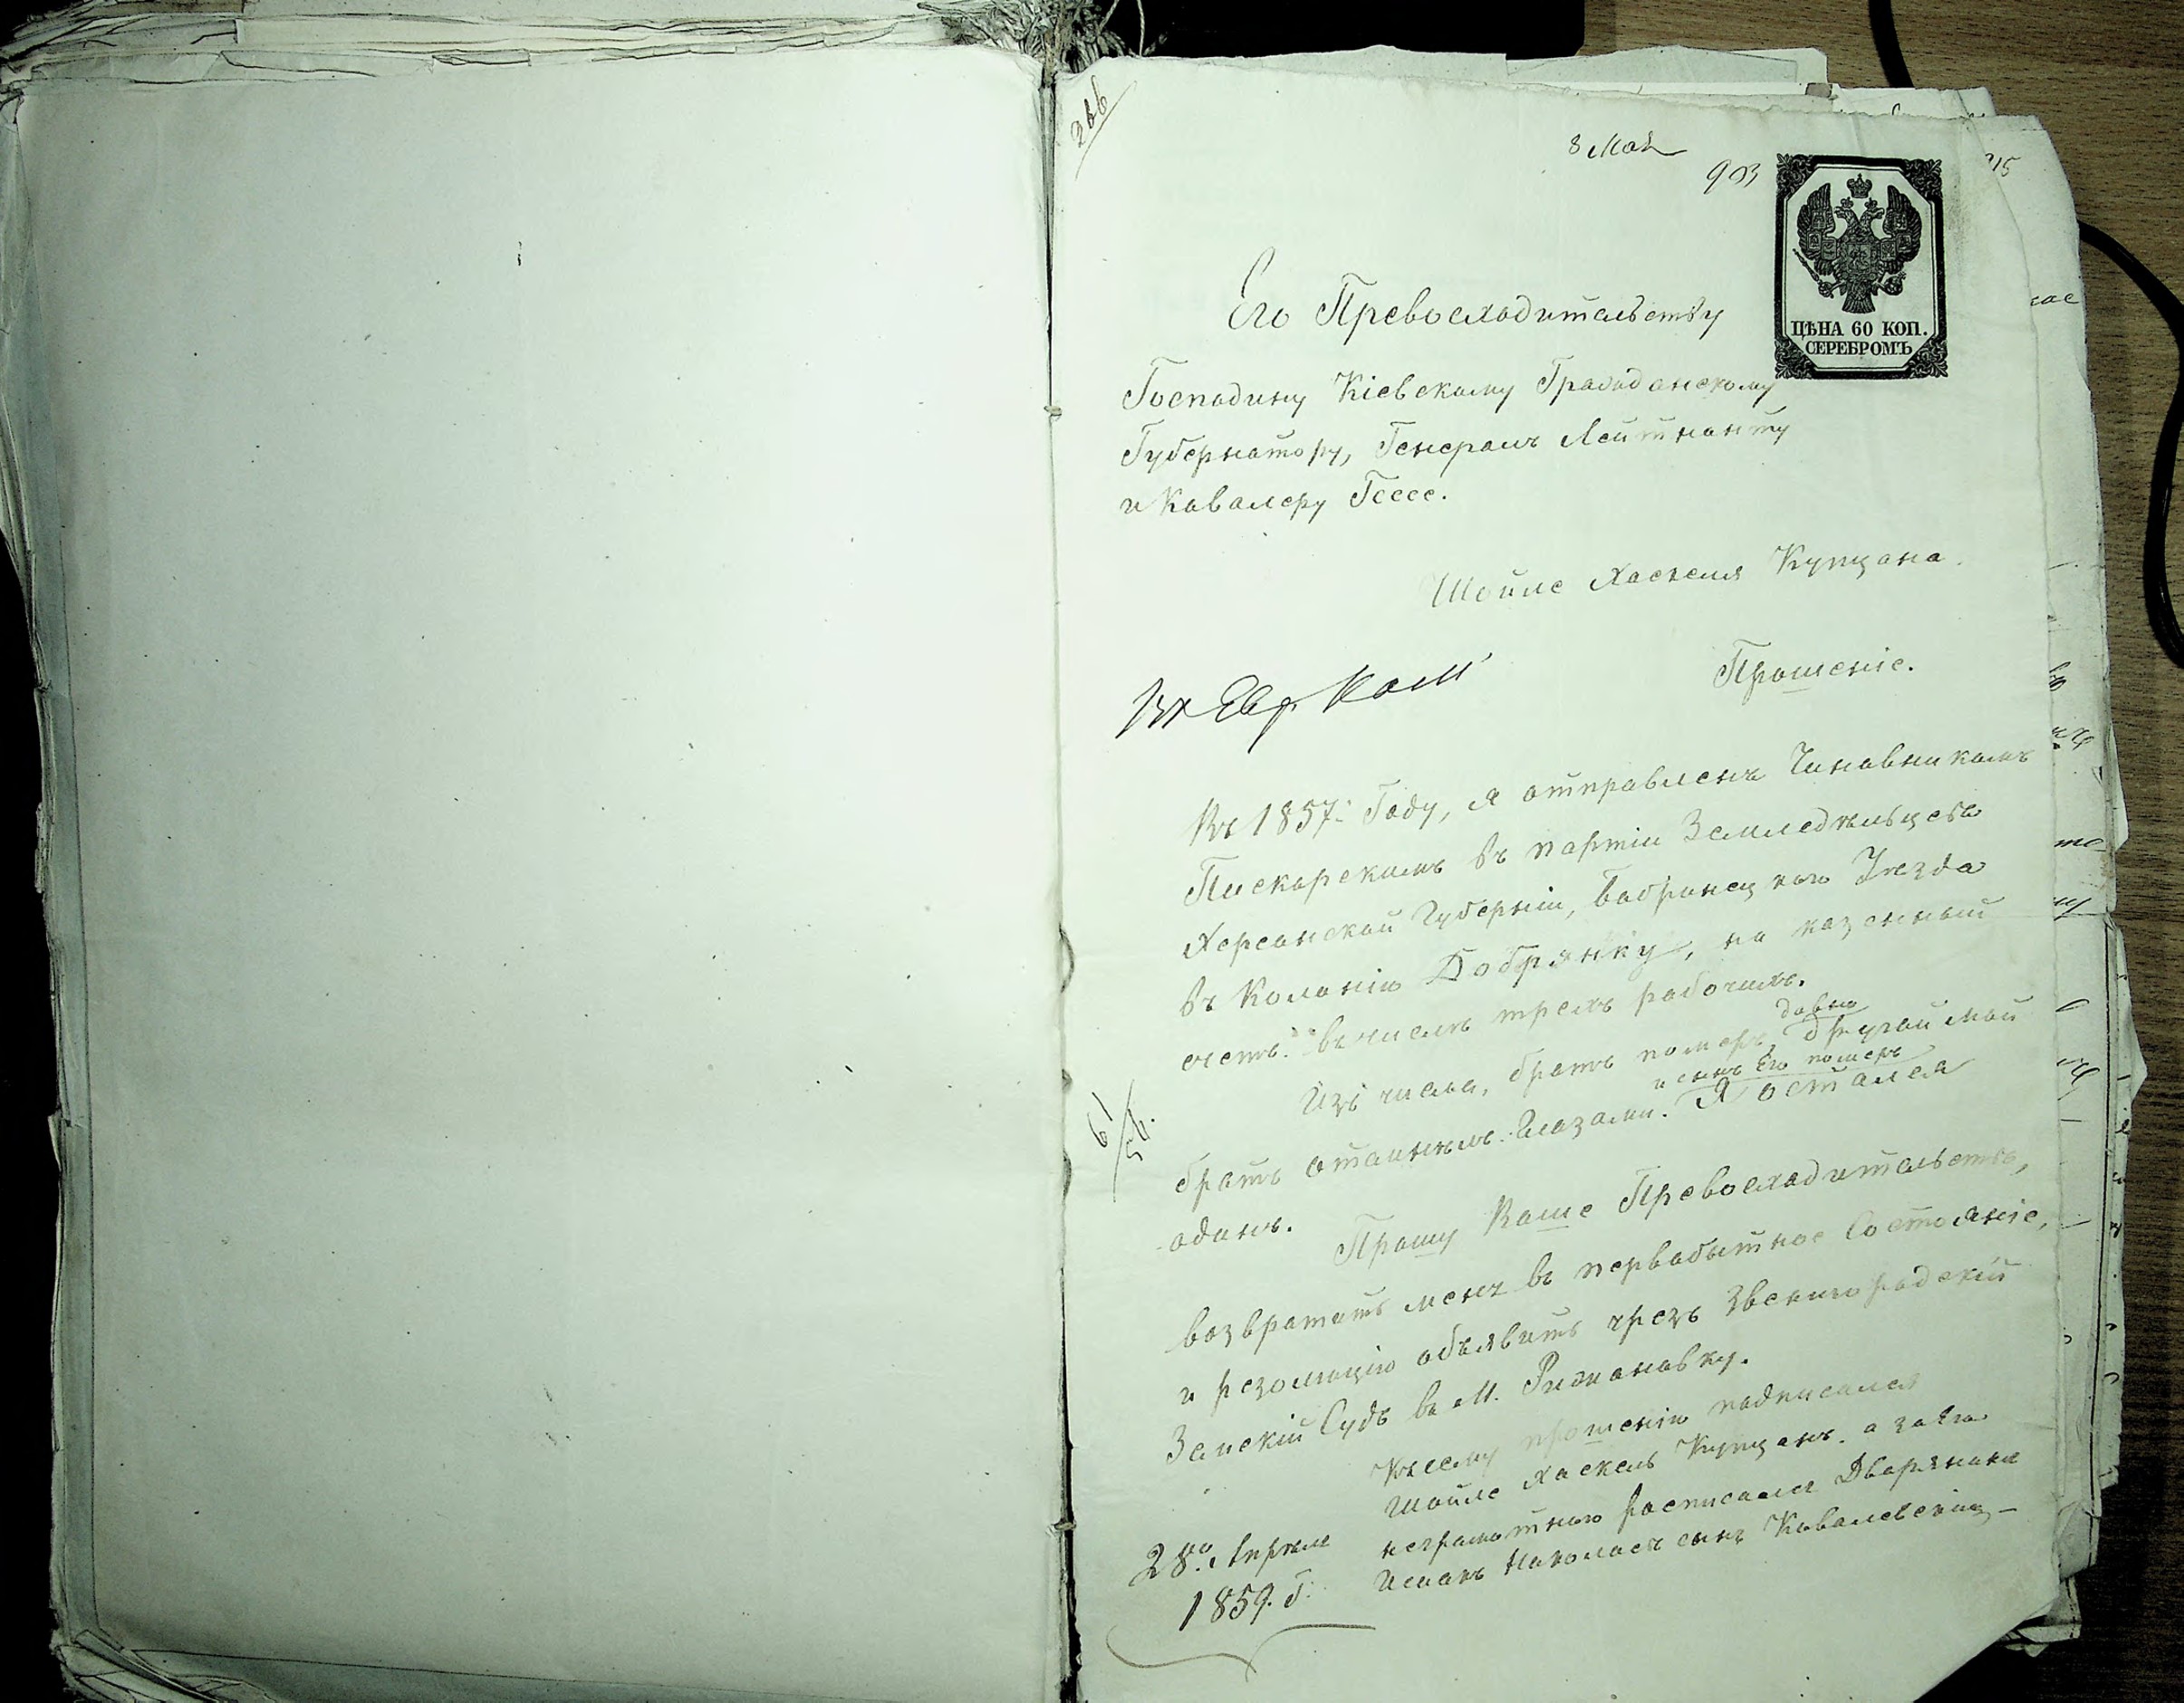 366
8 Мая
903
215
ЦѢНА 60 КОП.
СЕРЕБРОМЪ
Его Превосходительству
Господину Кіевскому Гражданскому
Губернатору, Генералъ Лейтнанту
и Кавалеру Гессе.
Шойле Хаскеля Купцана.
Прошеніе.
Въ 1857: Году, я отправленъ Чиновникомъ
Пискорскимъ въ партіи Земледѣльцевъ
Херсонской Губерніи, Бобринецкого Уѣзда
въ Колонію Добрянку, на казенный
счетъ. въ числѣ трехъ рабочихъ.
Изъ числа, братъ померъ, другой мой
давно
и сынъ Его померъ
братъ Глазами. Я остался
одинъ.
Прошу Ваше Превосходительство,
возвратить менѣ въ первобытное Состояніе,
и резолюцію объявить чрезъ Звенигородскій
Земскій Судъ въ М. Рижановку.
61/56.
Къ сему прошенію подписался
Шойле Хаскель Купцанъ. а за Его
неграмотного росписался Дворянинъ
Николаевъ сынъ Ковалевскій
28го. Апрѣля
1859. Г.